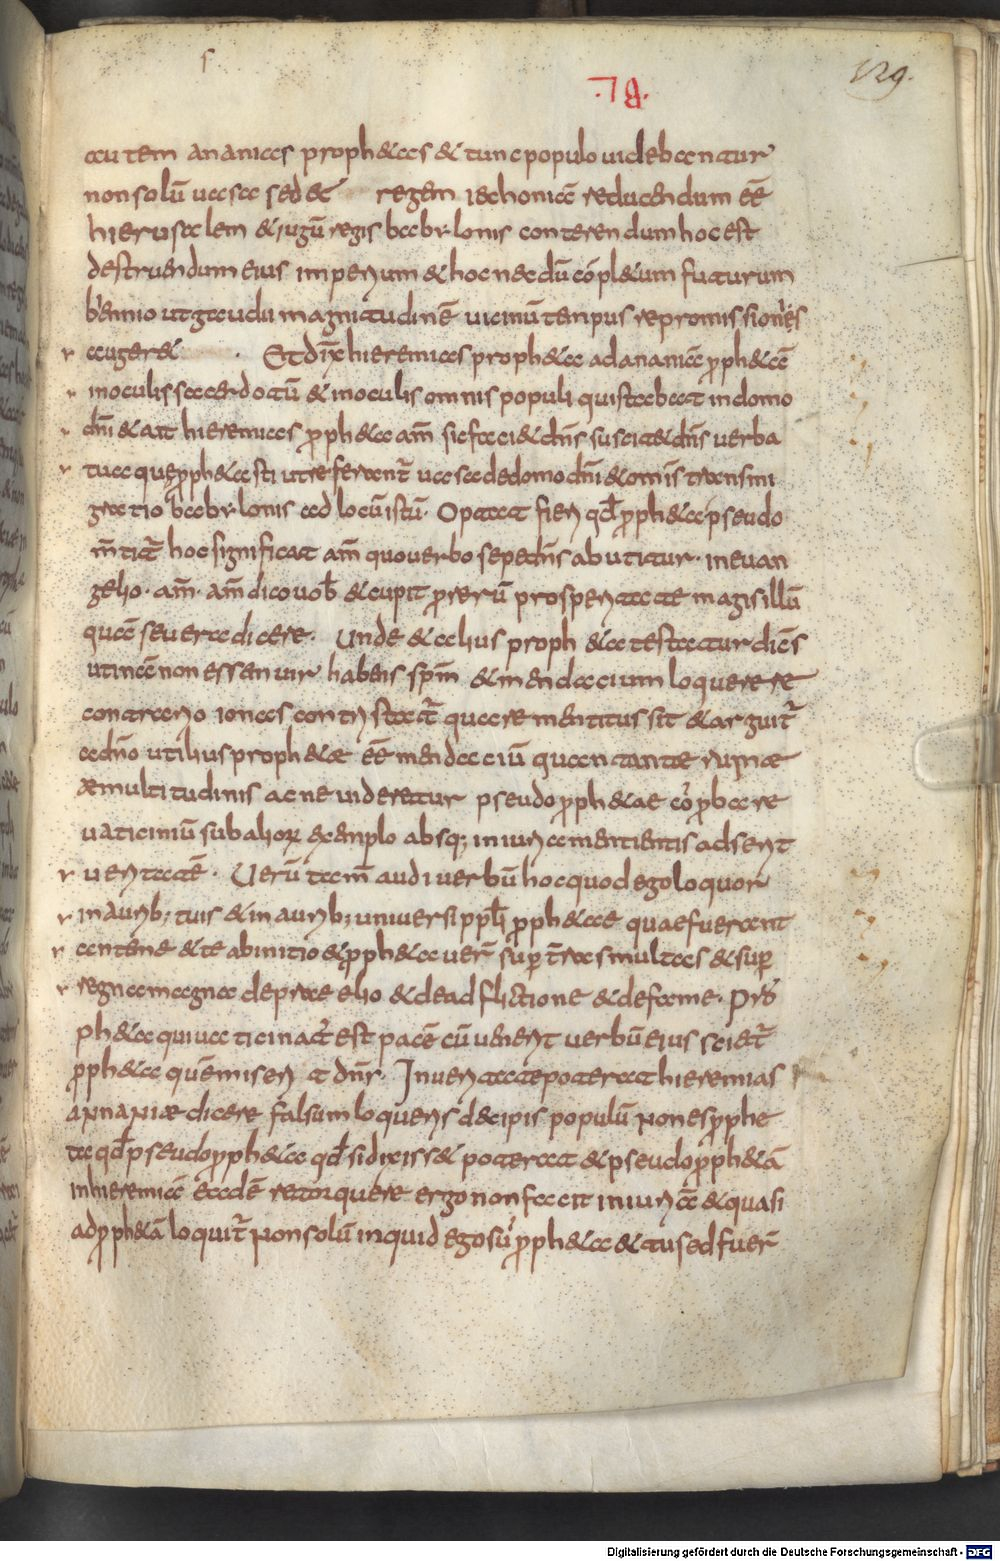 129.
autem ananias proph&as & tunc populo uidebantur
non solū uasa sed &ē regem iechoniā reducendum eē
hierusalem & iugū regis babylonis conterendum hoc est
destruendum eius imperium & hoc necdū cōpl&um futurum
biennio ut gaudii magnitudinē uicinū tempus repromissionis
r auger& . Et dix̄ hieremias proph&a ad ananiā pph&ā
r in oculis sacerdotū & in oculis omnis populi qui stabat in domo
r dn̄i & ait hieremias pph&a am̄ sic faci& dn̄s suscit& dn̄s uerba
r tua que pph&asti ut referant̄ uasa de domo dn̄i & om̄is transmi
gratio babylonis ad locū istū. Opatat fieri qd̄ pph&a pseudo
m̄tit̄ hoc significat am̄ quo uerbo sepe dn̄s abutitur. in euan
gelio. am̄. am̄ dico uob̄ & cupit prerū prosperitate magis illū
quā se uera dicere. Unde & alius proph&a testatur dicēs
utinā non essem uir habens spm̄ & mendacium loquerere
contrario ionas contristat̄ quare mentitus sit & arguit̄
a dn̄o utilius proph&ae eē mendaciū quam tantae ruinae
multitudinis ac ne uideretur pseudo pph&ae cōpbare
uaticiniū sub alioꝝ exemplo absq; iniuria mentientis adserit
r ueritatē. Uerū tam̄ audi uerbū hoc quod ego loquor
r in aurib; tuis & in aurib; uniuersi ppl̄i pph&ae quae fuerant
r ante me & te ab initio & pph&auer̄ sup t̄ras multas & sup
r regna magna de praelio & de adflictione & de fame. Pro
ph&a qui uaticinat̄ est pacē cū uenerit uerbū eius sciet̄
pph&a quē miserit dn̄s. In ueritate poterat hieremias
ananiae dicere falsum loqueris decipis populū non es pphe
ta qd̄ pseudopph&a qd̄ si dixiss& poterat & pseudopph&ā
in hieremiā eadē retorquere ergo non facit iniuriā & quasi
ad pph&ā loquit̄ non solū inquid ego sū pph&a & tu sed fuer̄
Digitalisierung gefördert durch die Deutsche Forschungsgemeinschaft - DFG